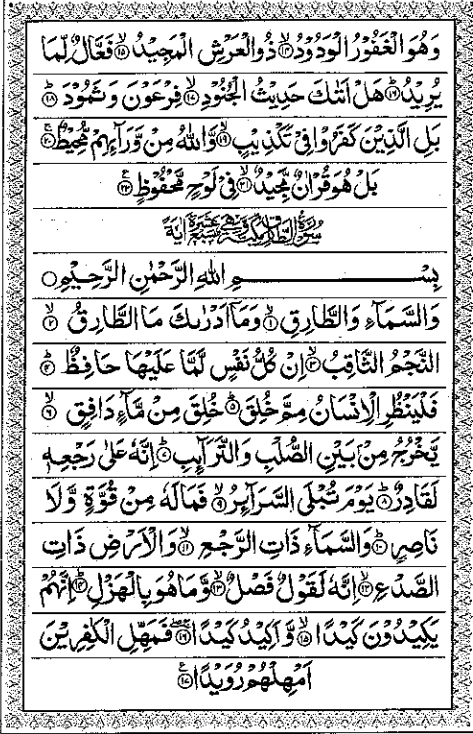 وَهُوَ الْغَفُوْرُ الْوَدُوْدُ ۙ۝۱۴ ذُو الْعَرْشِ الْمَجِيْدُ ۙ۝۱۵ فَعَّالٌ لِّمَا
يُرِيْدُ ؕ۝۱۶ هَلْ اَتٰىكَ حَدِيْثُ الْجُنُوْدِ ۙ۝۱۷ فِرْعَوْنَ وَ ثَمُوْدَ ؕ۝۱۸
بَلِ الَّذِيْنَ كَفَرُوْا فِيْ تَكْذِيْبٍ ۙ۝۱۹ وَّاللّٰهُ مِنْ وَّرَآىِٕهِمْ مُّحِيْطٌ ۚ۝۲۰
بَلْ هُوَ قُرْاٰنٌ مَّجِيْدٌ ۙ۝۲۱ فِيْ لَوْحٍ مَّحْفُوْظٍ ۝۲۲
سُوْرَةُ الطَّارِقِ مَكِّيَّةٌ وَّهِيَ سَبْعَ عَشْرَةَ اٰيَةً
بِسْمِ اللّٰهِ الرَّحْمٰنِ الرَّحِيْمِ ۝
وَالسَّمَآءِ وَالطَّارِقِ ۙ۝۱ وَمَاۤ اَدْرٰىكَ مَا الطَّارِقُ ۙ۝۲
النَّجْمُ الثَّاقِبُ ۙ۝۳ اِنْ كُلُّ نَفْسٍ لَّمَّا عَلَيْهَا حَافِظٌ ؕ۝۴
فَلْيَنْظُرِ الْاِنْسَانُ مِمَّ خُلِقَ ؕ۝۵ خُلِقَ مِنْ مَّآءٍ دَافِقٍ ۙ۝۶
يَّخْرُجُ مِنْۢ بَيْنِ الصُّلْبِ وَالتَّرَآىِٕبِ ؕ۝۷ اِنَّهٗ عَلٰى رَجْعِهٖ
لَقَادِرٌ ؕ۝۸ يَوْمَ تُبْلَى السَّرَآىِٕرُ ۙ۝۹ فَمَا لَهٗ مِنْ قُوَّةٍ وَّلَا
نَاصِرٍ ؕ۝۱۰ وَالسَّمَآءِ ذَاتِ الرَّجْعِ ۙ۝۱۱ وَالْاَرْضِ ذَاتِ
الصَّدْعِ ۙ۝۱۲ اِنَّهٗ لَقَوْلٌ فَصْلٌ ۙ۝۱۳ وَّمَا هُوَ بِالْهَزْلِ ؕ۝۱۴ اِنَّهُمْ
يَكِيْدُوْنَ كَيْدًا ۙ۝۱۵ وَّاَكِيْدُ كَيْدًا ۝۱۶ فَمَهِّلِ الْكٰفِرِيْنَ
اَمْهِلْهُمْ رُوَيْدًا ۝۱۷